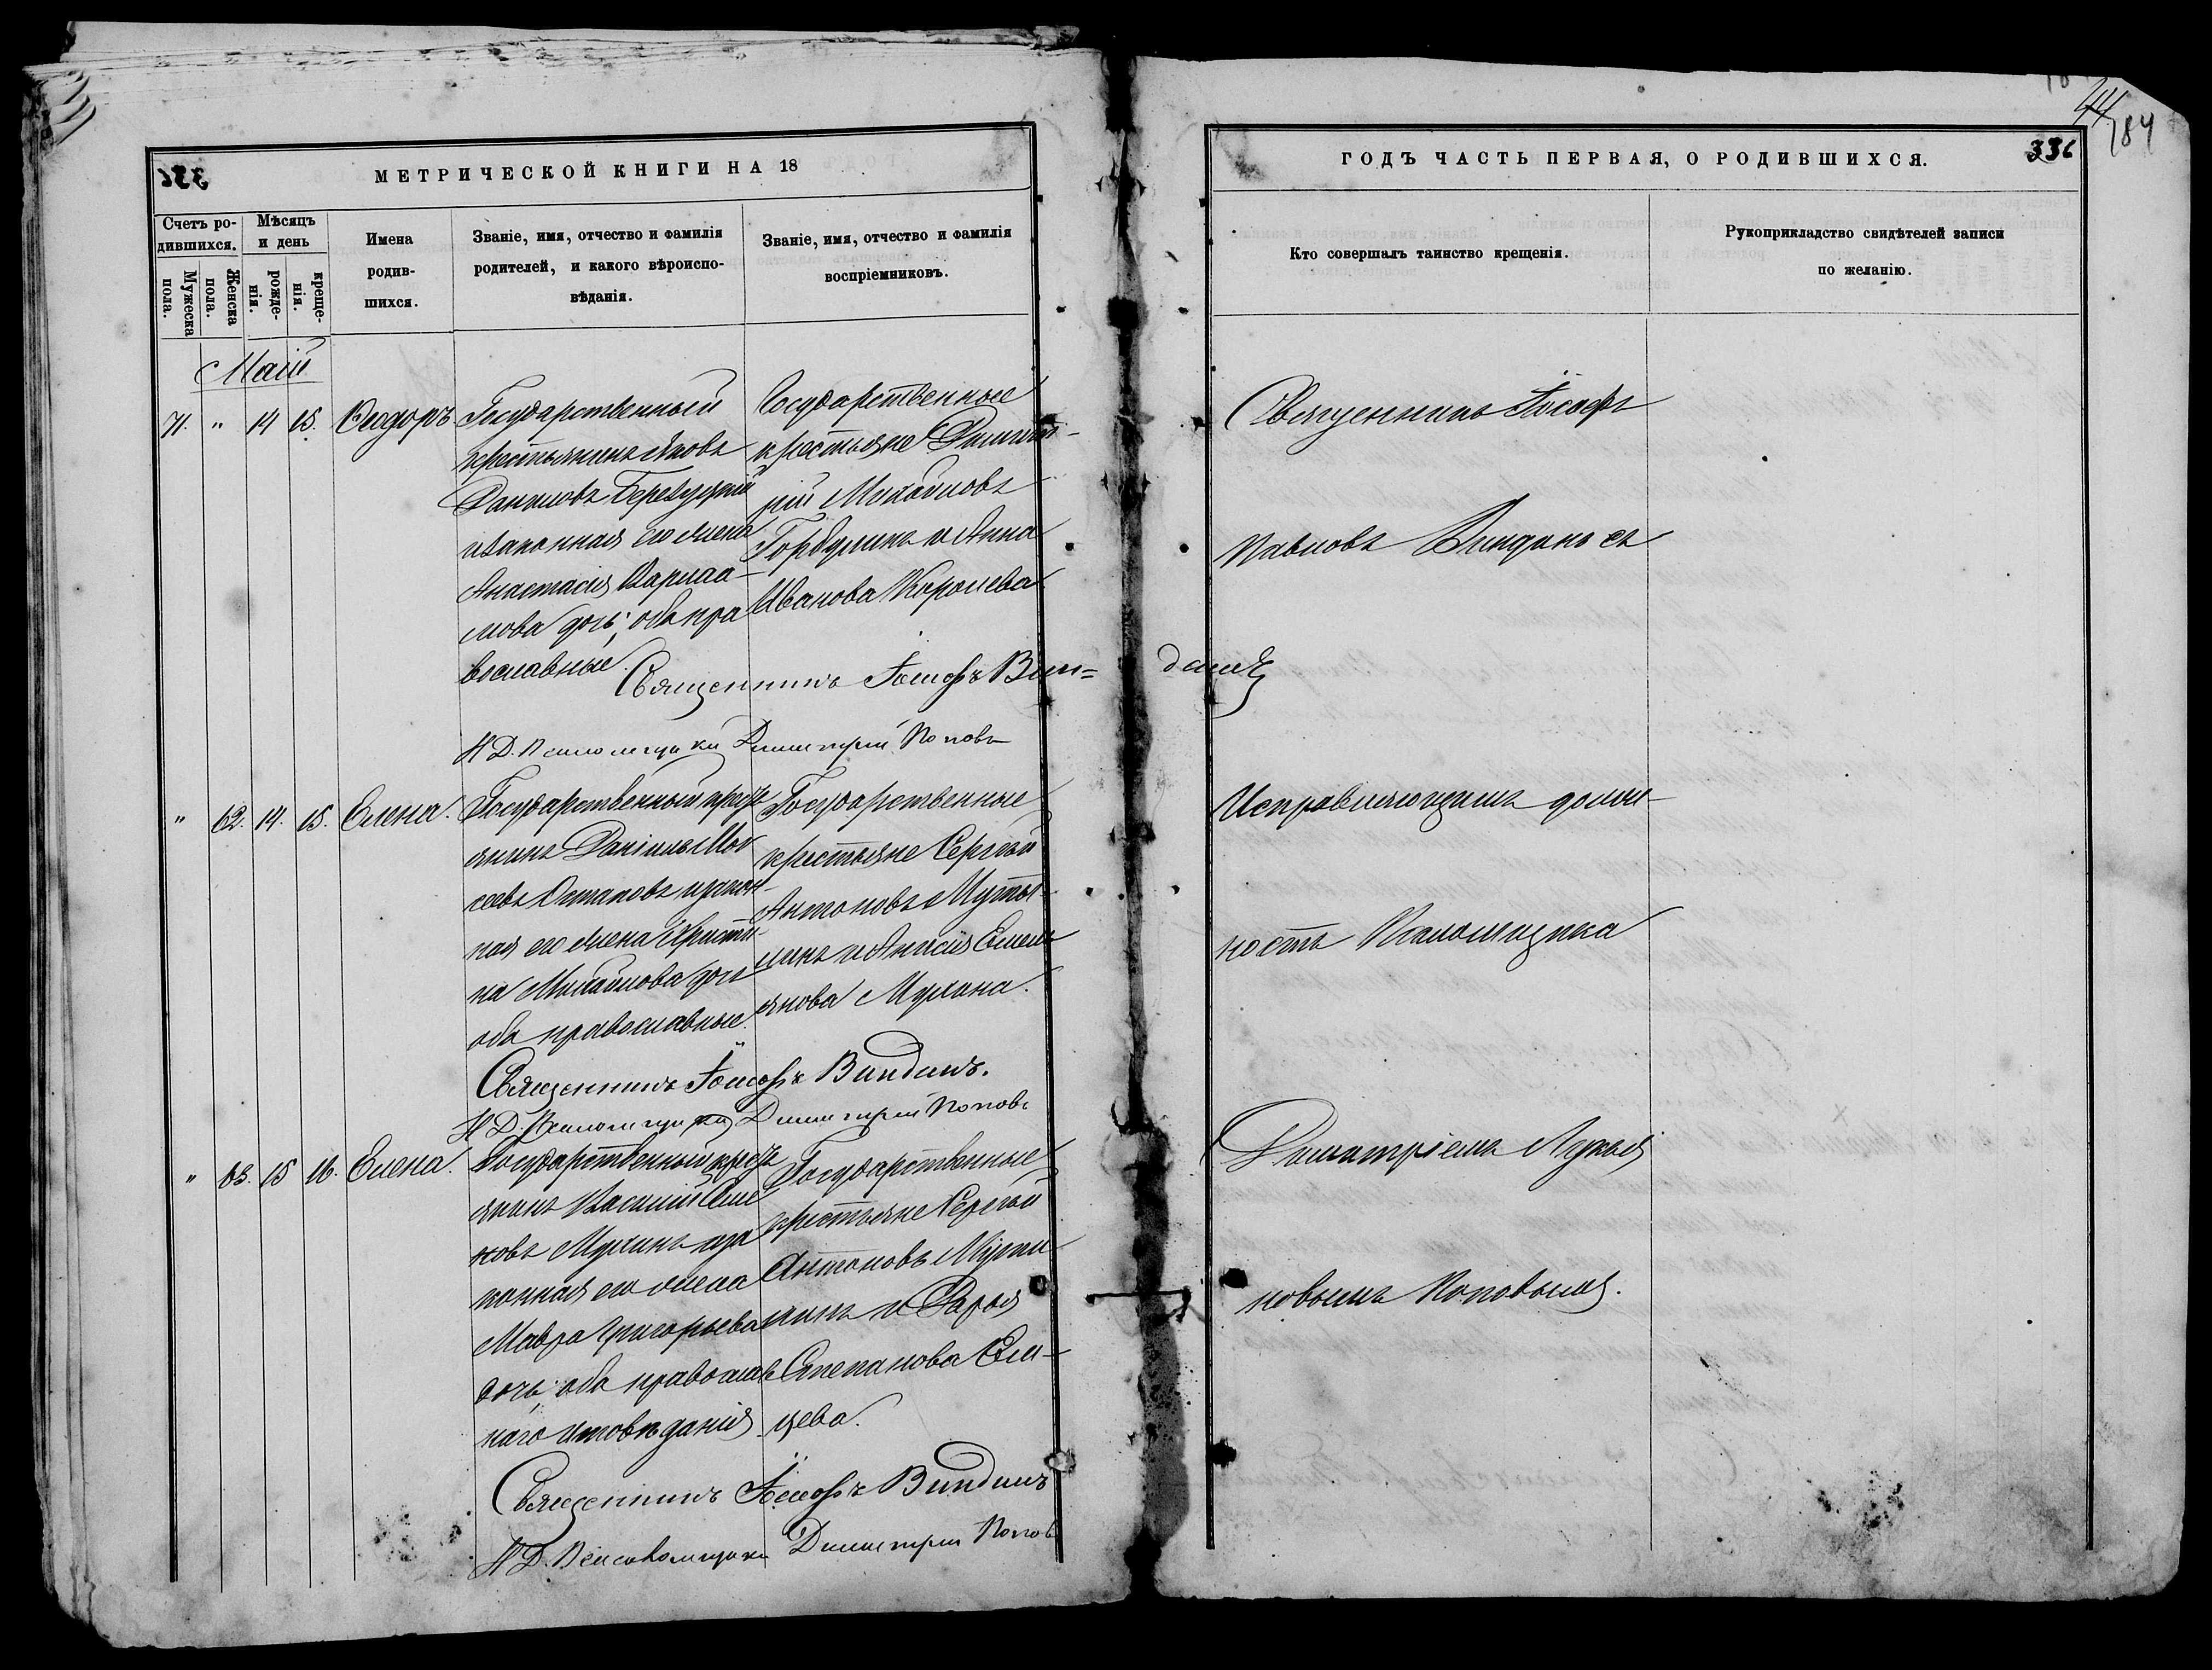 МЕТРИЧЕСКОЙ КНИГИ НА 18
Счетъ ро-
дившихся.
Мужеска
пола.
Женска
пола.
Мѣсяцъ
и день
рожде-
нія.
креще-
нія.
Имена
родив-
шихся.
Званіе, имя, отчество и фамилія
родителей, и какого вѣроиспо-
вѣданія.
Званіе, имя, отчество и фамилія
воспріемниковъ.
Маій
71. " 14 15. Ѳеодоръ
Государственный
крестьянинъ Яковъ
Даниловъ Березуцкій
изаконная его жена
Анастасія Варлаа-
мова дочь; оба пра
вославные.
Государственные
крестьяне Димит-
рій Михайловъ
Горбулинъ и Анна
Иванова Королева
Священникъ Іосифъ Вин=
данъ
И Д. Псаломщика Димитрій Поповъ
" 62. 14. 15. Елена.
Государственный крест
янинъ Даніилъ Мои
сеевъ Остаповъ изакон-
ная его жена Христи-
на Михайлова дочь
оба православные.
Государственные
крестьяне Сергѣй
Антоновъ
и Анисія Емель
янова
Священникъ Іосифъ Винданъ.
И Д. Псаломщика Димитрій Поповъ
" 63. 15 16. Елена.
Государственный крест
янинъ Василій
новъ иза
конная его жена
Мавра Григорьева
дочь; оба православ
наго исповѣданія.
Государственные
крестьяне Сергѣй
Антоновъ
и Дарья
Степанова Ели-
цева.
Священникъ Іосифъ Винданъ
И Д. Псаломщика Димитрій Поповъ
ГОДЪ ЧАСТЬ ПЕРВАЯ, О РОДИВШИХСЯ.
336
44
184
Кто совершалъ таинство крещенія.
Рукоприкладство свидѣтелей записи
по желанію.
Священникъ Іосифъ
Павловъ Винданъ съ
Исправляющимъ долж-
ность Псаломщика
Димитріемъ Лукья
новымъ Поповымъ.